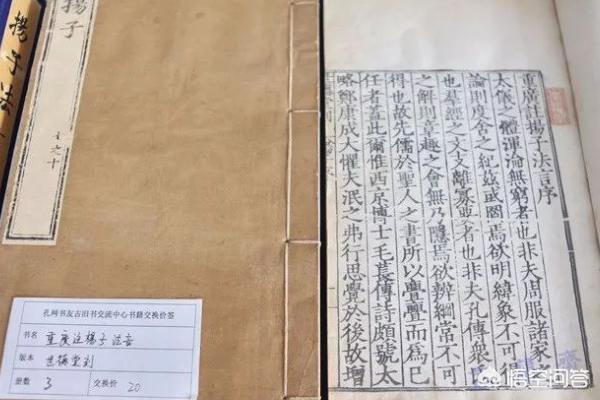 揚子法
揚子
一之十
孔网书友古旧书交流中心书籍交换价签
书名 重廣注揚子法言
版本 世德堂刻
册数 3 交换价 20
重廣註揚子法言序
太儀之體渾淪無窮者也非夫周服諸家
論則度舍之紀茲或罔焉欲明緯象不可
也羣經之文支離者也非夫孔傳衆
之解則旨趣之會無乃隱焉欲辨綱常不可
得也故先儒於聖人之書所以亹而爲己
任者蓋此爾惟西京博士毛萇傳詩頗號太
略鄭康成大懼夫泯之弗行思覺於後故增
悟空问答